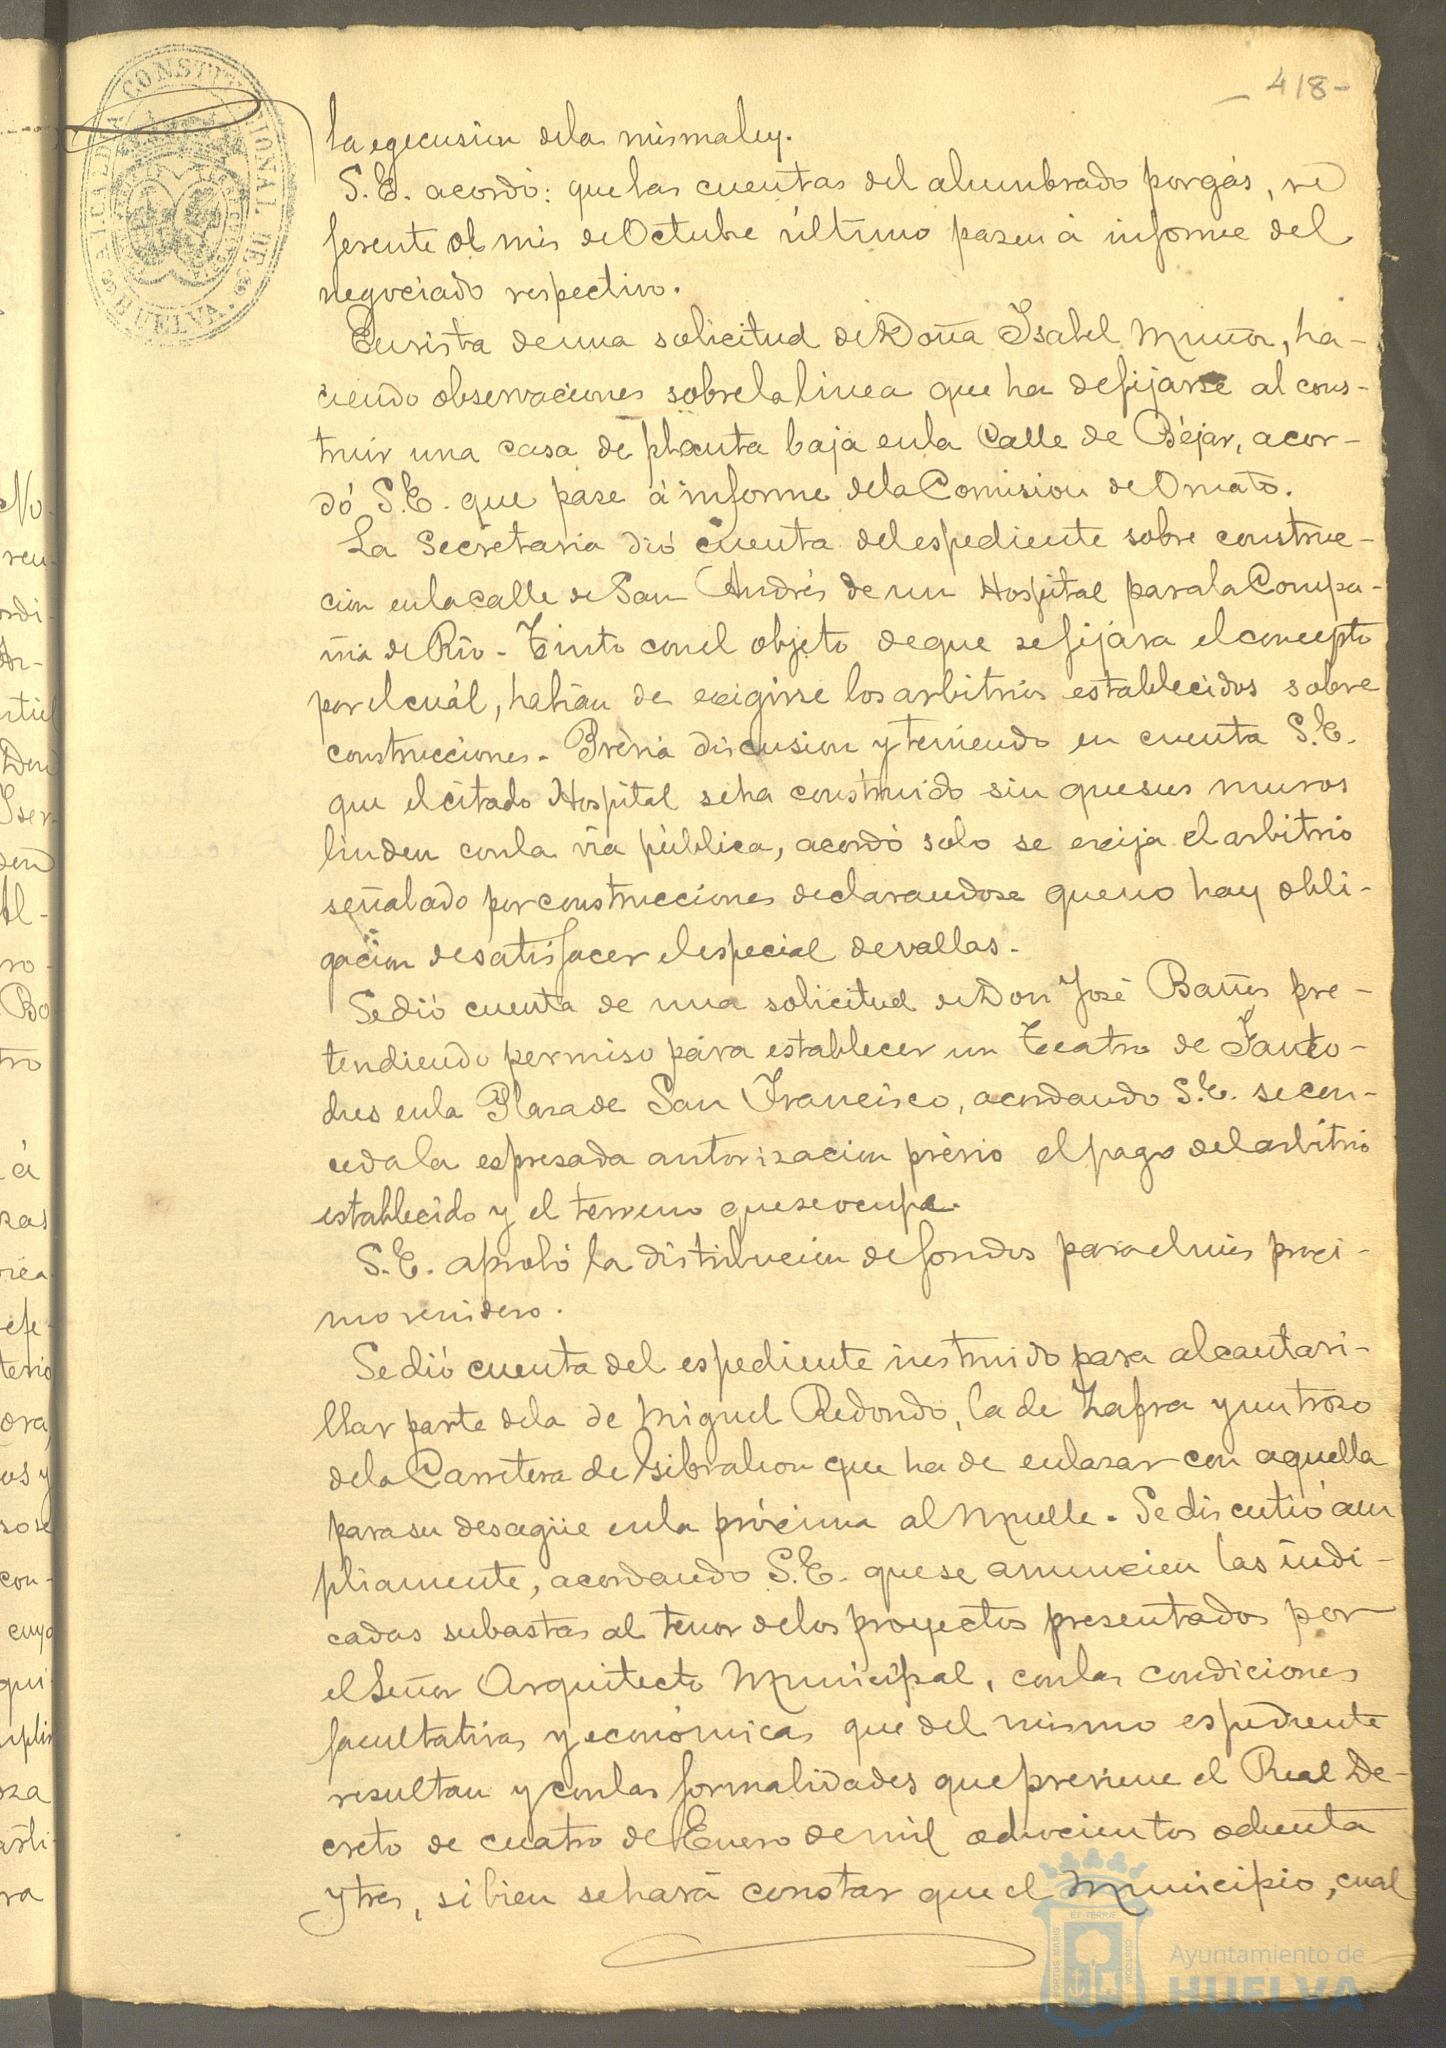 - 418 -
ALCALDIA CONSTITUCIONAL DE HUELVA
la egecusion dela misma ley.
S.E. acordó: que las cuentas del alumbrado por gás, re
ferente al mes de Octubre último pasen á informe del
negociado respectivo.
En vista de una solicitud de Doña Isabel Muñoz, ha-
ciendo observaciones sobre la linea que ha de fijarse al cons-
truir una casa de planta baja en la Calle de Béjar, acor-
dó S.E. que pase á informe de la Comision de Ornato.
La Secretaria dió cuenta del espediente sobre construc-
cion en la calle de San Andrés de un Hospital para la Compa-
ñia de Rio-Tinto con el objeto de que se fijára el concepto
por el cuál, habian de exigirse los arbitrios establecidos sobre
construcciones. Prévia discusion y teniendo en cuenta S.E.
que el citado Hospital se ha construido sin que sus muros
linden con la via pública, acordó solo se exija el arbitrio
señalado por construcciones declarandose que no hay obli-
gacion de satisfacer el especial de vallas.
Se dió cuenta de una solicitud de Don José Bañes pre-
tendiendo permiso pára establecer un Teatro de Fanto-
ches en la Plaza de San Francisco, acordando S.E. se con-
ceda la espresada autorizacion prévio el pago del arbitrio
establecido y el terreno que se ocupe.
S.E. aprobó la distribucion de fondos para el mes proxi-
mo venidero.
Se dió cuenta del espediente instruido para alcantari-
llar parte dela de Miguel Redondo, la de Zafra y un trozo
de la Carretera de Gibraleon que ha de enlazar con aquella
para su desagüe en la próxima al Muelle. Se discutió am
pliamente, acordando S.E. que se anuncien las indi-
cadas subastas al tenor de los proyectos presentados por
el Señor Arquitecto Municipal, con las condiciones
facultativas y económicas que del mismo espediente
resultan y con las formalidades que previene el Real De-
creto de cuatro de Enero de mil ochocientos ochenta
y tres, si bien se hará constar que el Municipio, cual
Ayuntamiento de
HUELVA